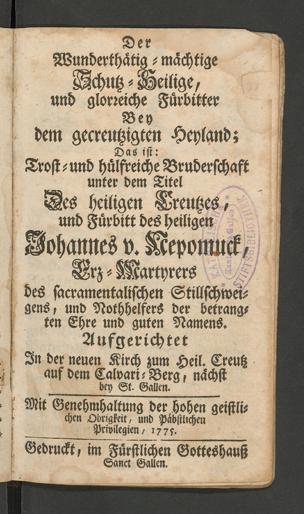 Der
Wunderthätig-mächtige
Schutz-Heilige,
und glorreiche Fürbitter
Bey
dem gecreutzigten Heyland;
Das ist:
Trost- und hülfreiche Bruderschaft
unter dem Titel
Des heiligen Creutzes,
und Fürbitt des heiligen
Johannes v. Nepomuck,
Erz-Martyrers
des sacramentalischen Stillschwei-
gens, und Nothhelfers der betrang-
ten Ehre und guten Namens.
Aufgerichtet
In der neuen Kirch zum Heil. Creutz
auf dem Calvari-Berg, nächst
bey St. Gallen.
Mit Genehmhaltung der hohen geistli-
chen Obrigkeit, und Päbstlichen
Privilegien, 1775.
Gedruckt, im Fürstlichen Gotteshauß
Sanct Gallen.